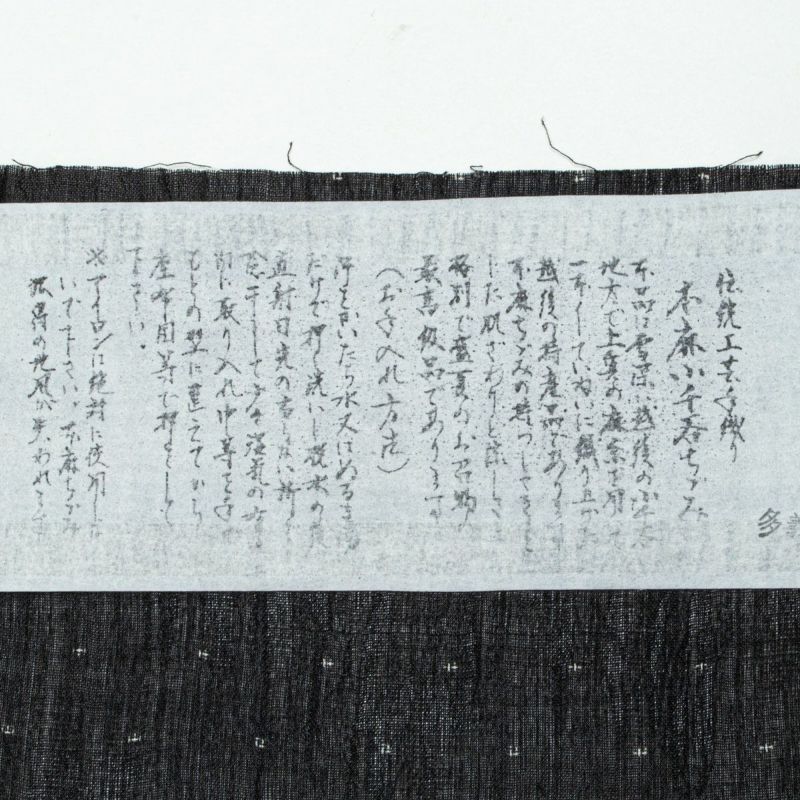 伝統工芸手織り
本麻小千谷ちぢみ
本品は雪深い越後の小千谷
地方で上等の麻糸を用いて
一本一本ていねいに織り上げた
越後の特産品であります
本麻ちぢみの持つしゃきっと
した肌ざわりと涼しさは
格別で盛夏のお召物の
最高級品であります
（お手入れ方法）
汗をかいたら水又はぬるま湯
だけで押し洗いし脱水の後
直射日光の当らない所で
陰干しして少々湿気の有る
内に取り入れ巾等を
もとの型に整えてから
座布団等で押をして
下さい。
※アイロンは絶対に使用しな
いで下さい。本麻ちぢみ
独得の地風が失われます
多